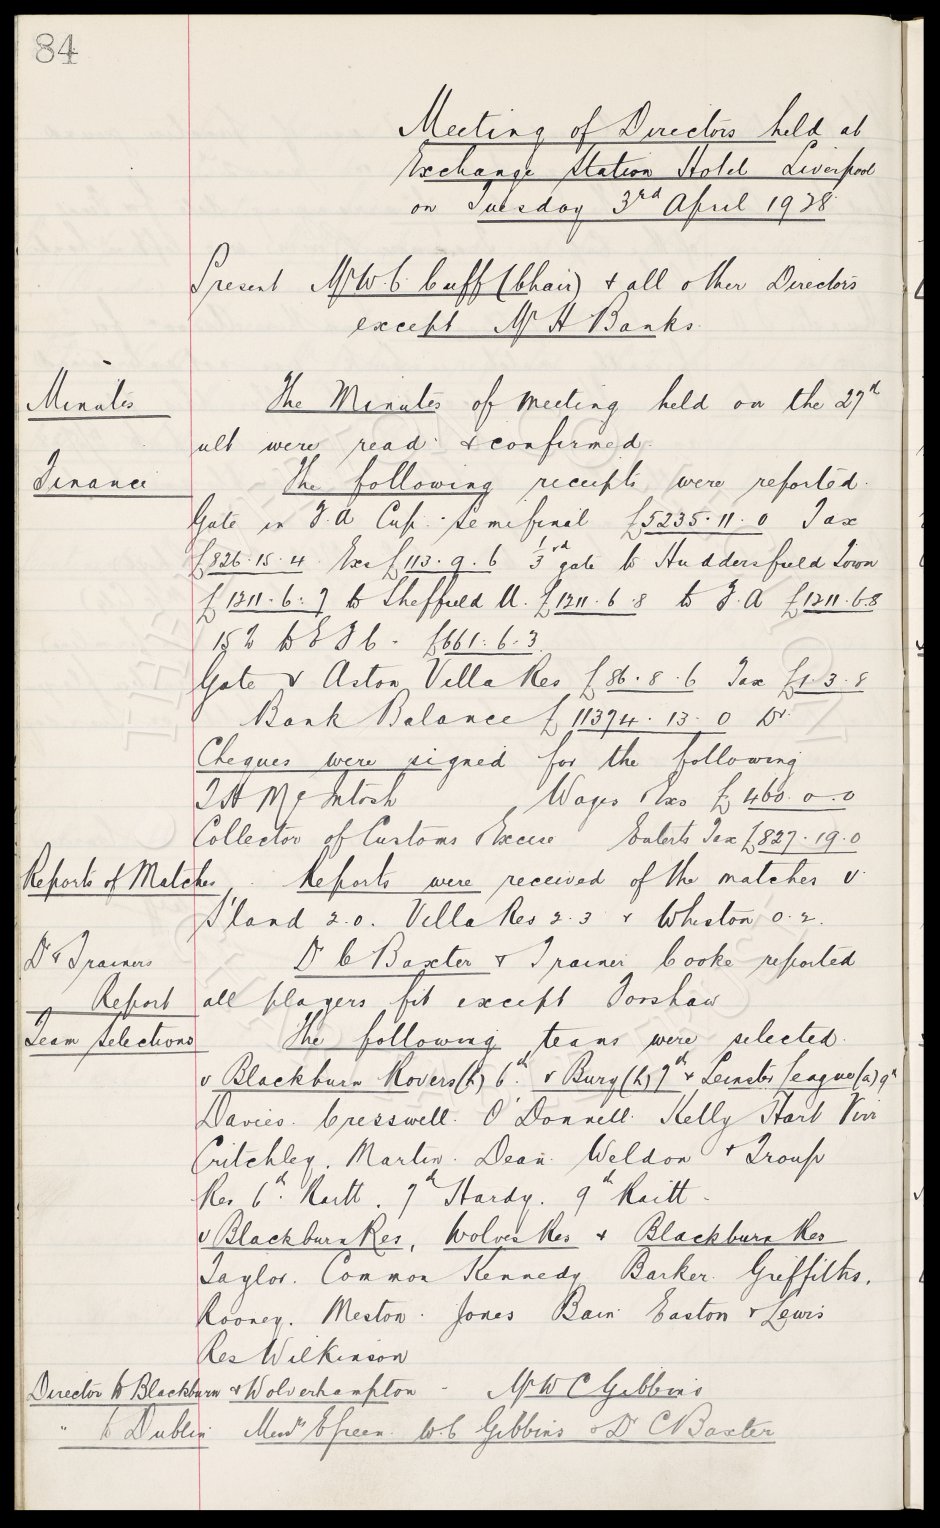 84
Meeting of Directors held at
Exchange Station Hotel Liverpool
on Tuesday 3rd April 1928
Present Mr W.C. Cuff (Chair) & all other Directors
except Mr H Banks.
Minutes The Minutes of meeting held on the 27th
ult were read & confirmed.
Finance The following receipts were reported.
Gate in F.A Cup. Semifinal £5235.11.0 Tax
£826.15.4 Exs £113.9.6 1/3rd gate to Huddersfield Town
£1211.6.7 to Sheffield U. £1211.6.8 to F.A £1211.6.8
15% to E F C - £661.6.3
Gate v Aston Villa Res £86.8.6 Tax £1.3.8
Bank Balance £11374.13.0 Dr
Cheques were signed for the following
T H McIntosh Wages Exs £460.0.0
Collector of Customs Excise Enterts Tax £827.19.0
Reports of Matches Reports were received of the matches v
S'land 2.0. Villa Res 2.3 & Whiston 0.2.
Dr & Trainers Dr C Baxter & Trainer Cooke reported
Report all players fit except Forshaw
Team Selections The following teams were selected.
v Blackburn Rovers (h) 6th v Bury (h) 7th & Leinster League (a) 9th
Davies. Cresswell. O'Donnell. Kelly Hart Virr
Critchley. Martin. Dean. Weldon & Troup
Res 6th Raitt. 7th Hardy. 9th Raitt.
v Blackburn Res, Wolves Res & Blackburn Res
Taylor. Common Kennedy Barker. Griffiths.
Rooney. Meston. Jones Bain Easton & Lewis
Res Wilkinson
Director to Blackburn & Wolverhampton - Mr W C Gibbins
" to Dublin Messrs E Green. W.C Gibbins & Dr C Baxter